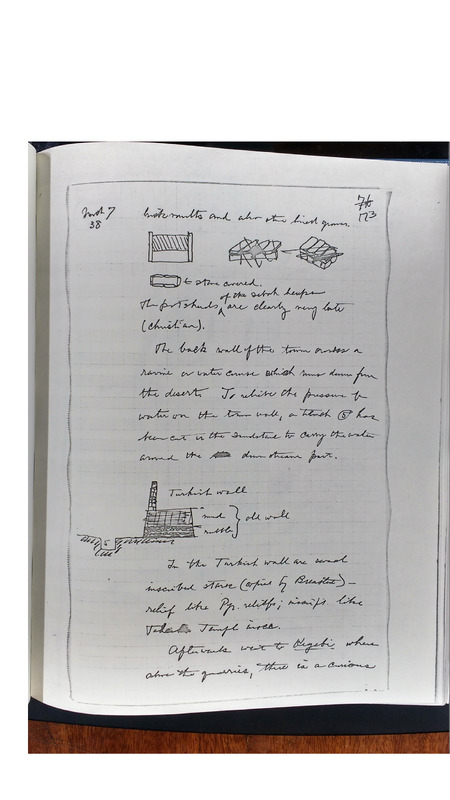 March 7
38
173
brick vaults and also stone lined graves.
stone covered.
of the sebakh heaps
The potsherds are clearly very late
(Christian).
The back wall of the town crosses a
ravine or water course which runs down from
the desert. To relieve the pressure of
water on the town wall, a ditch (5) has
been cut in the sandstone to carry the water
around the down stream part.
Turkish wall
mud
old wall
rubble
5
In the Turkish wall are several
inscribed stones (copies by Breasted) –
relief like reliefs; inscrips like
Temple inscr.
Afterwards went to where
above the quarries, there is a curious